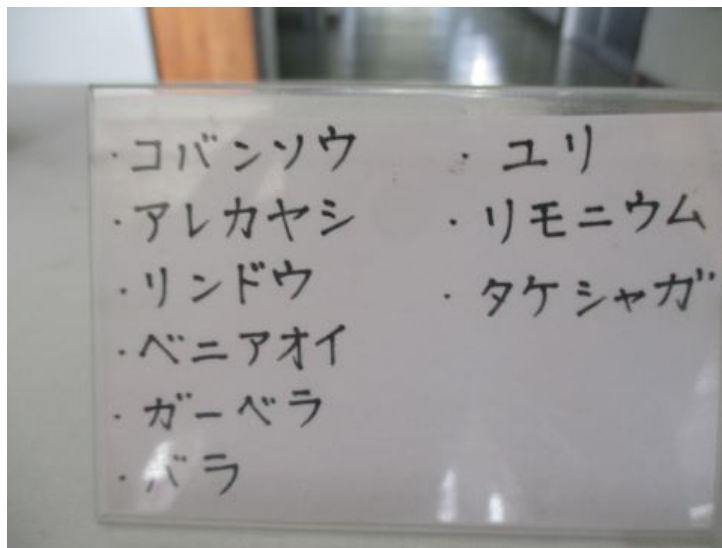 ・コバンソウ
・アレカヤシ
・リンドウ
・ベニアオイ
・ガーベラ
・バラ
・ユリ
・リモニウム
・タケシャガ